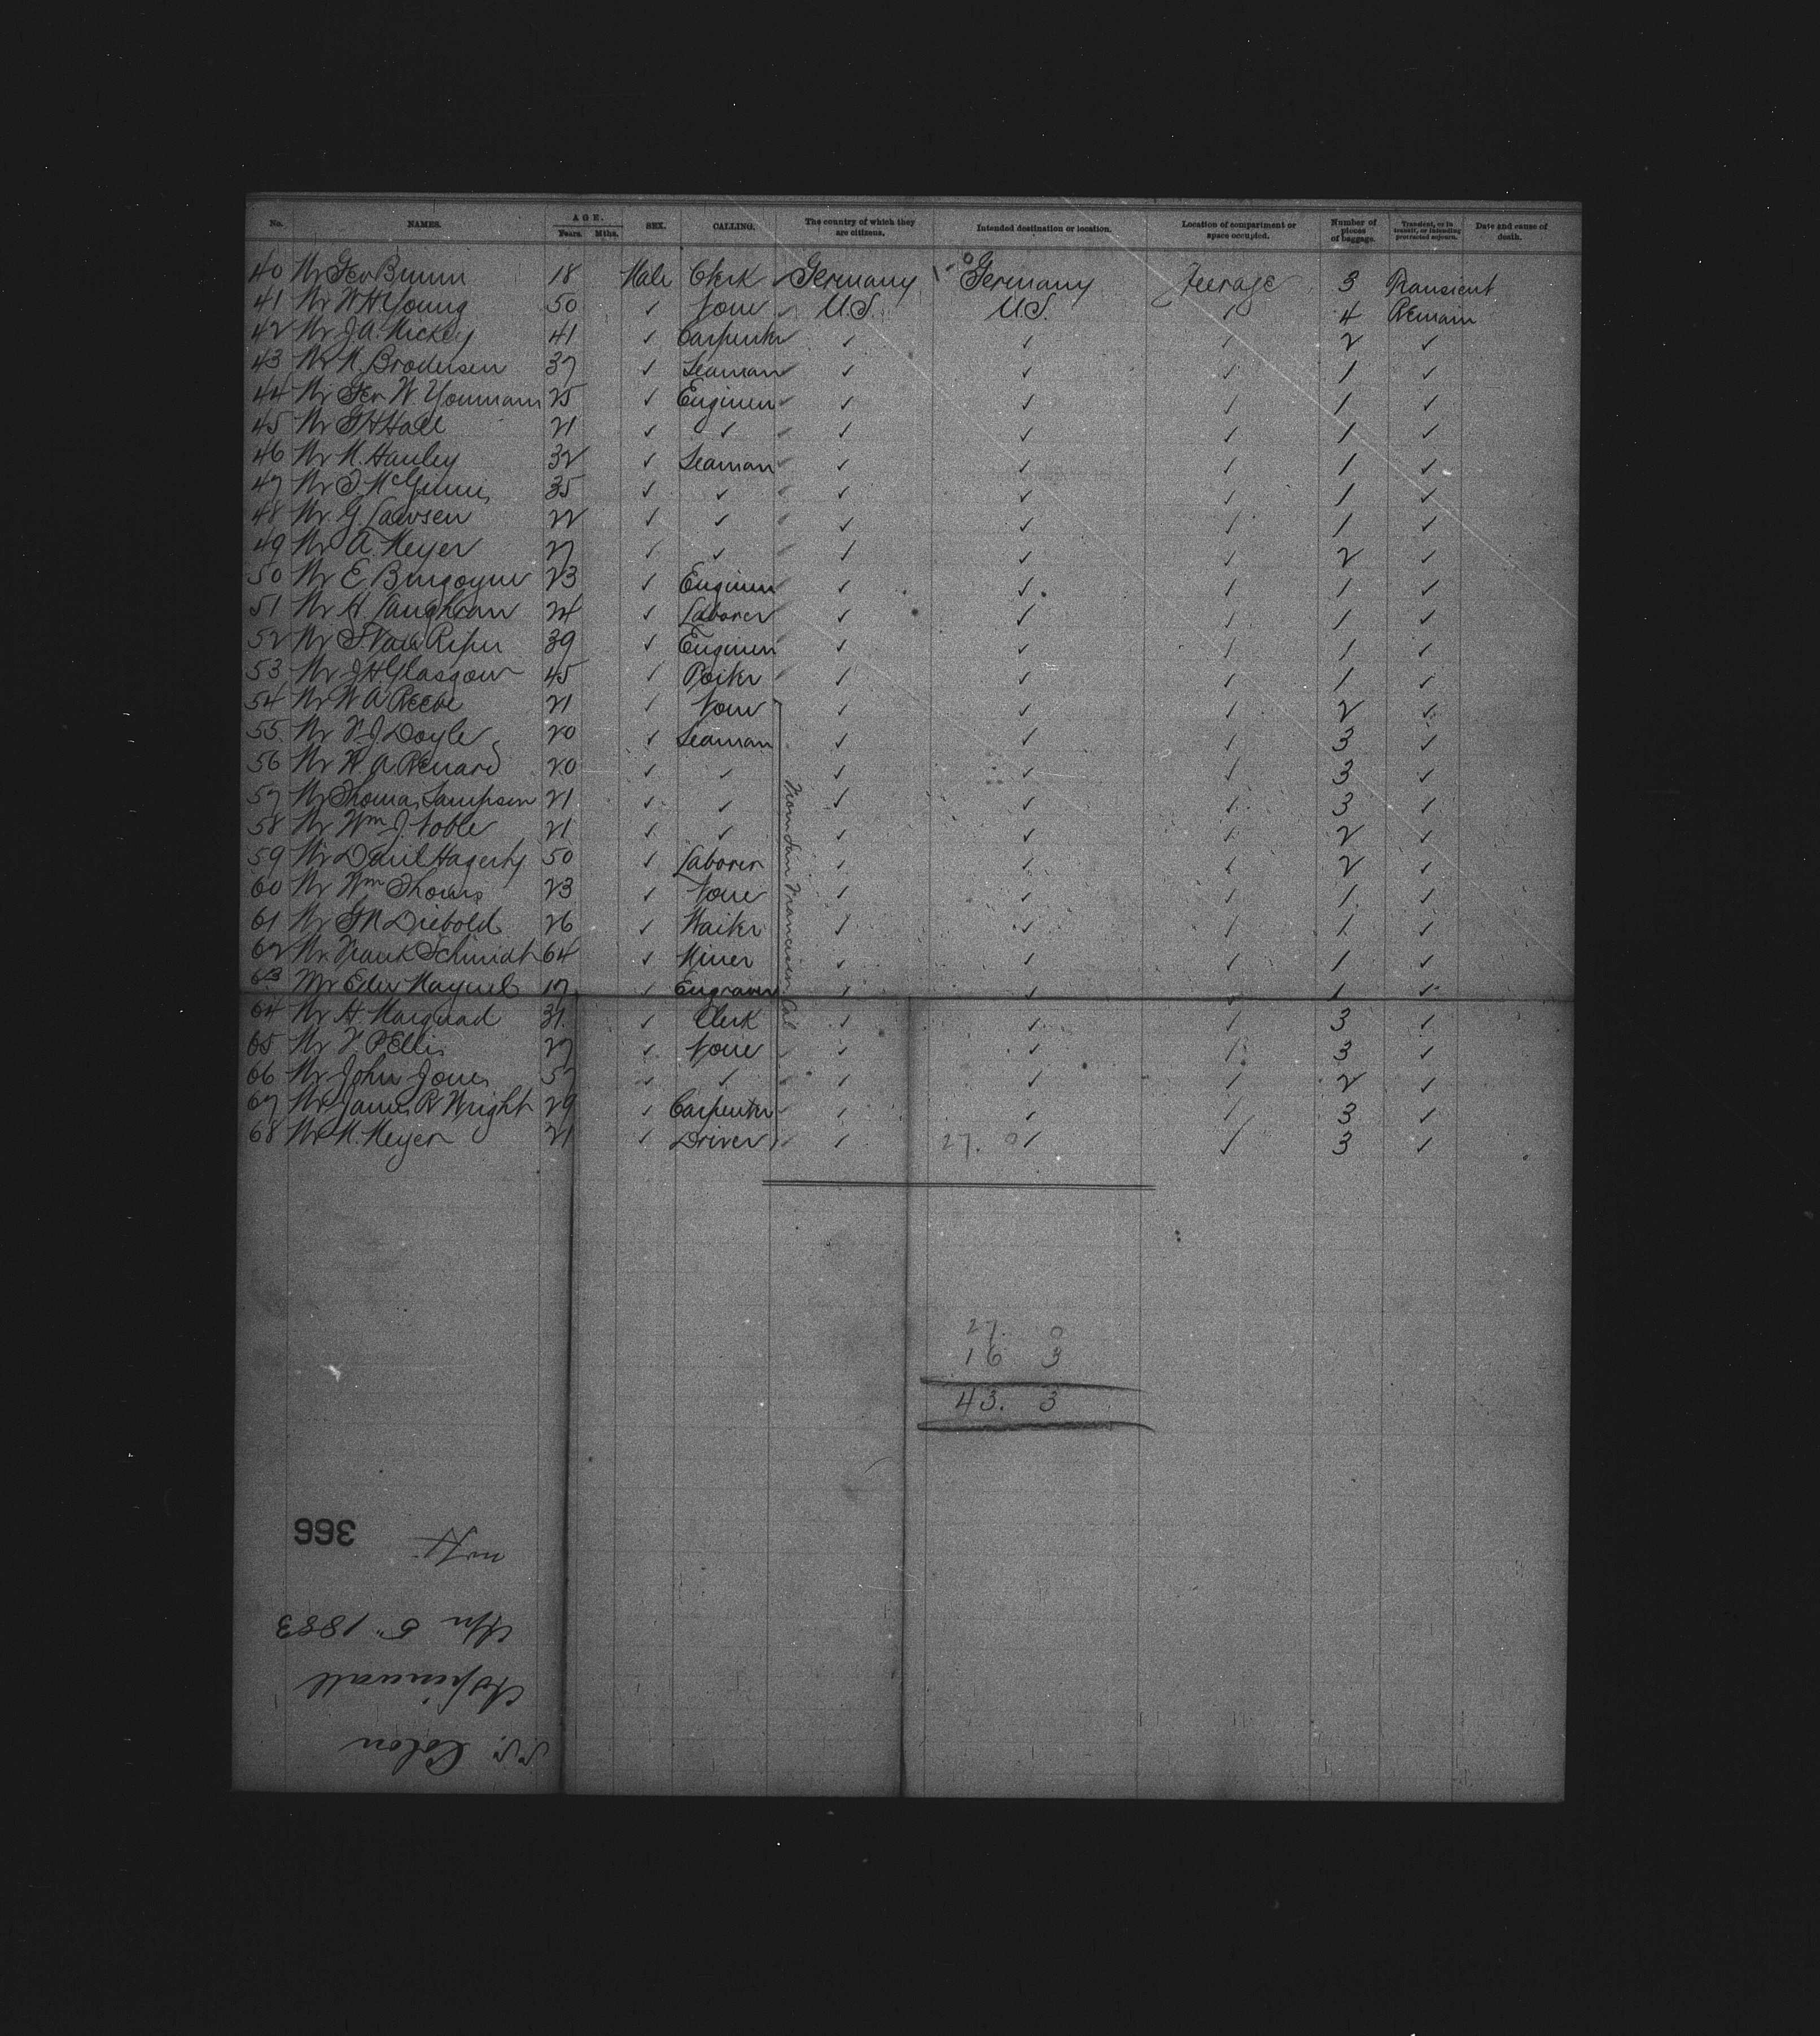 No. NAMES. AGE. Years. Mths. SEX. CALLING. The country of which they are citizens. Intended destination or location. Location of compartment or space occupied. Number of pieces of baggage. Transient, or in transit, or intending protracted sojourn. Date and cause of death.
40 Mr Geo Brunn 18 Male Clerk Germany Germany Steerage 3 Transient
41 Mr W H Young 50 ✓ None U.S. U.S. ✓ 4 Remain
42 Mr J. A. Mickey 41 ✓ Carpenter ✓ ✓ ✓ 2 ✓
43 Mr N. Brodersen 37 ✓ Seaman ✓ ✓ ✓ 1 ✓
44 Mr Geo W. Youmann 25 ✓ Engineer ✓ ✓ ✓ 1 ✓
45 Mr G H Hall 21 ✓ ✓ ✓ ✓ ✓ 1 ✓
46 Mr M. Hanley 32 ✓ Seaman ✓ ✓ ✓ 1 ✓
47 Mr McGinnis 35 ✓ ✓ ✓ ✓ ✓ 1 ✓
48 Mr G. Lawsen 22 ✓ ✓ ✓ ✓ ✓ 1 ✓
49 Mr A. Meyer 27 ✓ ✓ ✓ ✓ ✓ 2 ✓
50 Mr E Burgoyne 23 ✓ Engineer ✓ ✓ ✓ 1 ✓
51 Mr H. Laughran 24 ✓ Laborer ✓ ✓ ✓ 1 ✓
52 Mr Van Riper 39 ✓ Engineer ✓ ✓ ✓ 1 ✓
53 Mr J H. Glasgow 45 ✓ Porter ✓ ✓ ✓ 1 ✓
54 Mr W A Reebe 21 ✓ None ✓ ✓ ✓ 2 ✓
55 Mr J Doyle 20 ✓ Seaman ✓ ✓ ✓ 3 ✓
56 Mr A Renard 20 ✓ ✓ ✓ ✓ ✓ 3 ✓
57 Mr Thomas Sampson 21 ✓ ✓ ✓ ✓ ✓ 3 ✓
58 Mr Wm J. Noble 21 ✓ ✓ ✓ ✓ ✓ 2 ✓
59 Mr Danl Hagerty 50 ✓ Laborer ✓ ✓ ✓ 2 ✓
60 Mr Wm Thomas 23 ✓ None ✓ ✓ ✓ 1 ✓
61 Mr Diebold 26 ✓ Waiter ✓ ✓ ✓ 1 ✓
62 Mr Frank Schmidt 64 ✓ Miner ✓ ✓ ✓ 1 ✓
63 Mr 17 ✓ Engraver ✓ ✓ ✓ 1 ✓
64 Mr H. Marquad 31 ✓ Clerk ✓ ✓ ✓ 3 ✓
65 Mr Ellis 27 ✓ None ✓ ✓ ✓ 3 ✓
66 Mr John Jones 57 ✓ ✓ ✓ ✓ ✓ 2 ✓
67 Mr James R Wright 29 ✓ Carpenter ✓ ✓ ✓ 3 ✓
68 Mr M. Meyer 21 ✓ Driver ✓ 27. 0 ✓ ✓ 3 ✓
From San Francisco Cal
27. 0
16 3
43. 3
366
S.S. Colon
Aspinwall
5" 1883